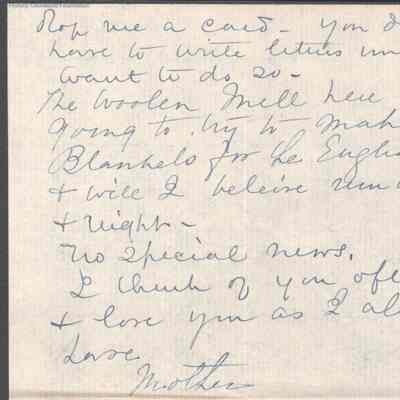 Drop me a card - you d
have to write letters un
want to do so -
The Woolen Mill here
going to try to mak
Blankets for the Englis
& will I beleive run
& night -
No special news.
I think of you ofte
& love you as I al
Love
Mother